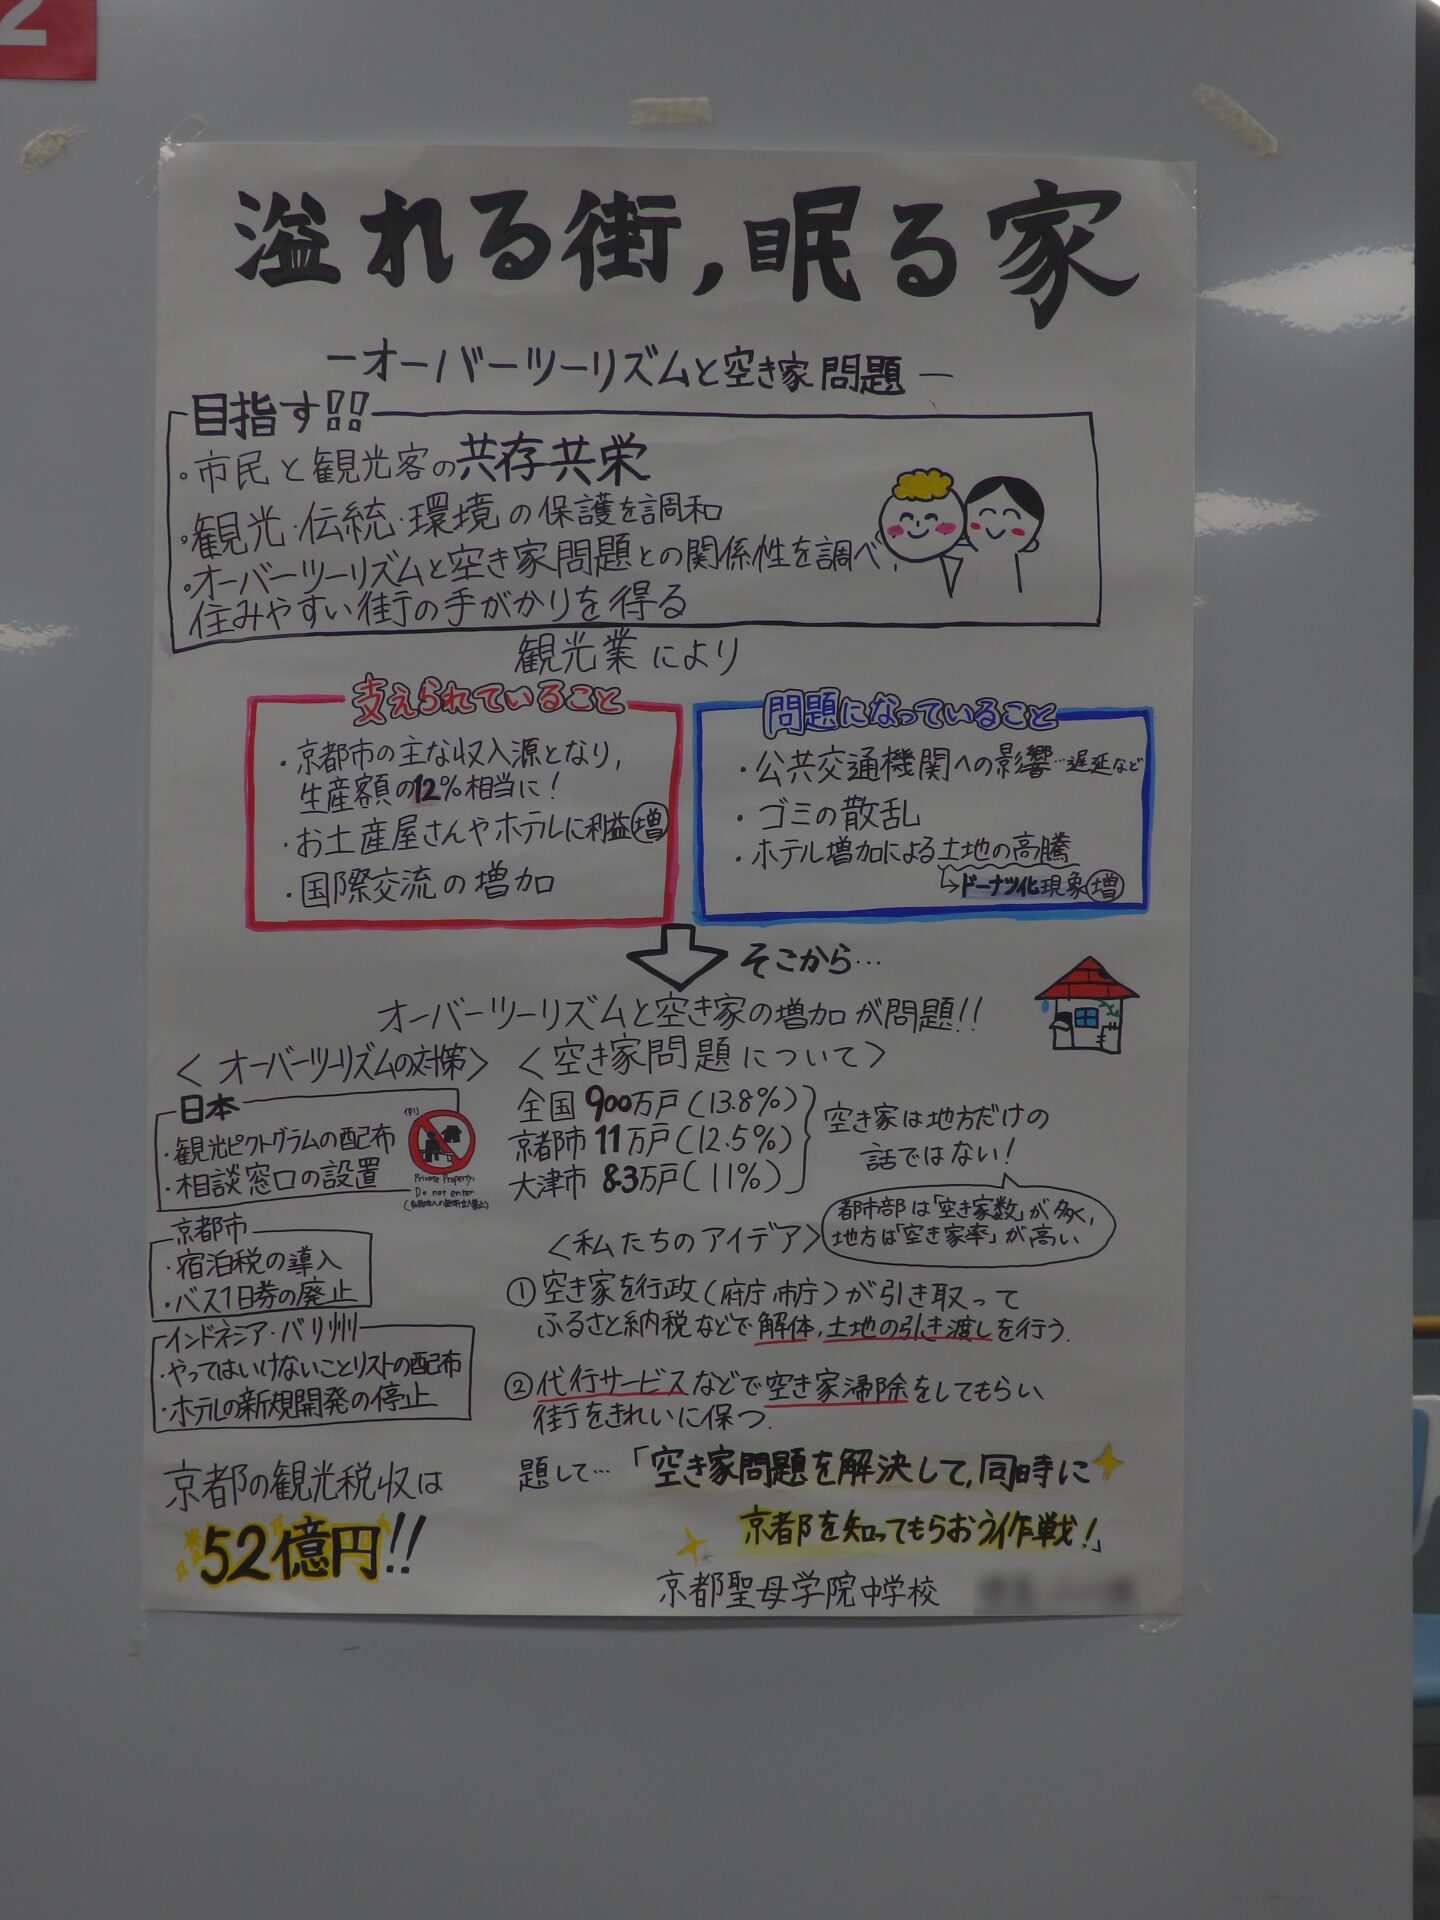 2
溢れる街,眠る家
ーオーバーツーリズムと空き家問題ー
目指す!!
・市民と観光客の共存共栄
・観光・伝統・環境の保護を調和
・オーバーツーリズムと空き家問題との関係性を調べ,
住みやすい街の手がかりを得る
観光業により
支えられていること
・京都市の主な収入源となり,
生産額の12%相当に!
・お土産屋さんやホテルに利益増
・国際交流の増加
問題になっていること
・公共交通機関への影響…遅延など
・ゴミの散乱
・ホテル増加による土地の高騰
↳ドーナツ化現象増
そこから…
オーバーツーリズムと空き家の増加が問題!!
<オーバーツーリズムの対策>
日本
・観光ピクトグラムの配布
・相談窓口の設置
(例)
Private Property.
Do not enter
京都市
・宿泊税の導入
・バス1日券の廃止
インドネシア・バリ州
・やってはいけないことリストの配布
・ホテルの新規開発の停止
京都の観光税収は
52億円!!
<空き家問題について>
全国 900万戸(13.8%)
京都市 11万戸(12.5%)
大津市 8.3万戸(11%)
空き家は地方だけの
話ではない!
都市部は「空き家数」が多く,
地方は「空き家率」が高い
<私たちのアイデア>
①空き家を行政(府庁,市庁)が引き取って
ふるさと納税などで解体,土地の引き渡しを行う.
②代行サービスなどで空き家掃除をしてもらい
街をきれいに保つ.
題して…「空き家問題を解決して,同時に
京都を知ってもらおう作戦!」
京都聖母学院中学校